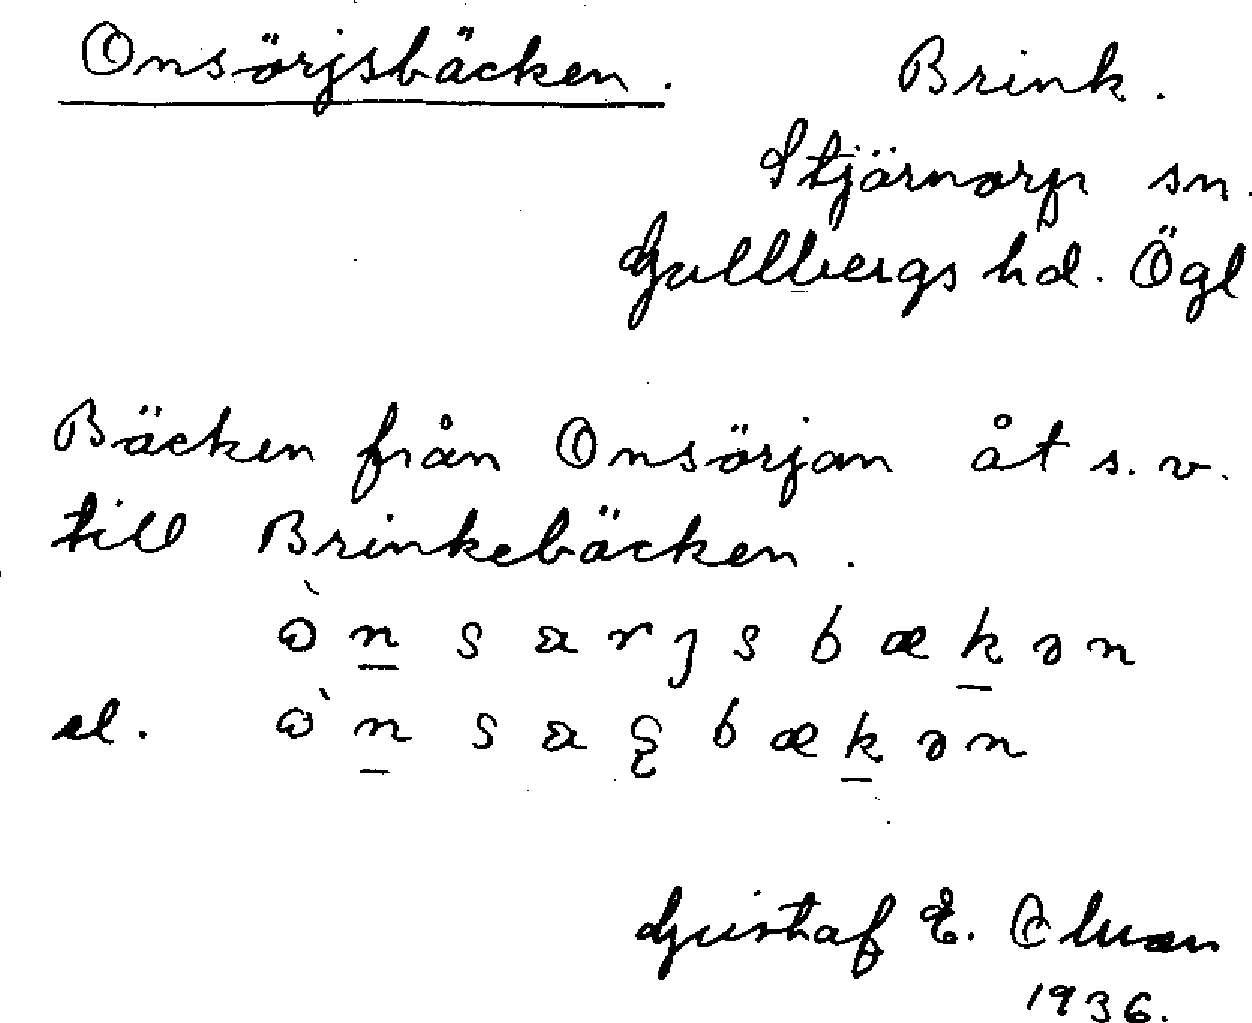 Onsörjsbäcken.
Brink.
Stjärnorp sn.
Gullbergs hd. Ögl
Bäcken från Onsörjan åt s.v.
till Brinkebäcken.
ɷ̀n̲sarjsbæk̲ən
el. ɷ̀n̲sabæk̲ən
Gustaf E.
1936.